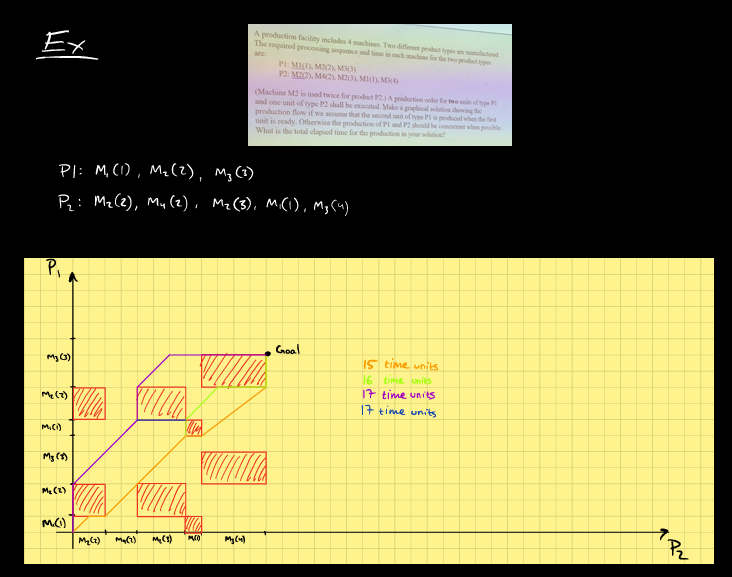 Ex
A production facility includes 4 machines. Two different product types are manufactured.
The required processing sequence and time in each machine for the two product types
are:
P1: M1(1), M2(2), M3(3)
P2: M2(2), M4(2), M2(3), M1(1), M3(4)
(Machine M2 is used twice for product P2.) A production order for two units of type P1
and one unit of type P2 shall be executed. Make a graphical solution showing the
production flow if we assume that the second unit of type P1 is produced when the first
unit is ready. Otherwise the production of P1 and P2 should be concurrent when possible.
What is the total elapsed time for the production in your solution?
P1: M₁(1), M₂(2), M₃(3)
P₂: M₂(2), M₄(2), M₂(3), M₁(1), M₃(4)
P₁
Goal
M₃(3)
15 time units
16 time units
M₂(2)
17 time units
17 time units
M₁(1)
M₃(3)
M₂(2)
M₁(1)
M₂(2) M₄(2) M₂(3) M(1) M₃(4)
P₂